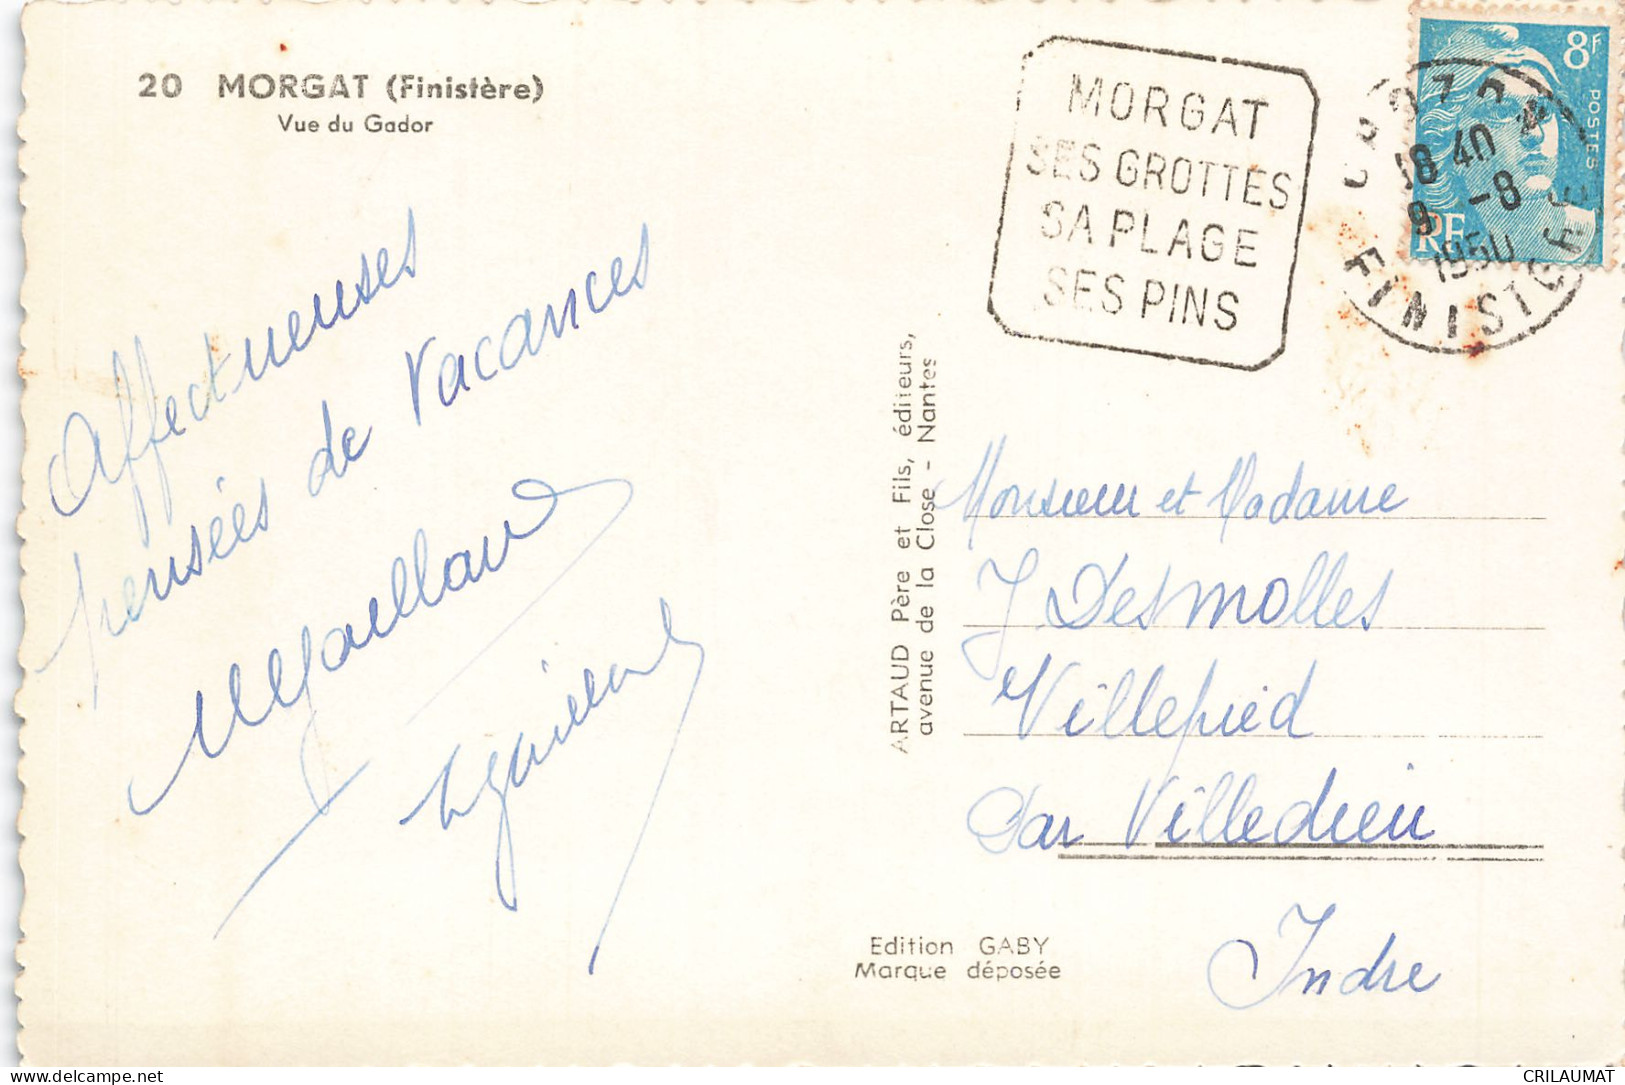 20 MORGAT (Finistère)
Vue du Gador
Affectueuses
pensées de Vacances
MORGAT
SES GROTTES
SA PLAGE
SES PINS
18 40
9 -8
1950
FINISTÈRE
8F
POSTES
RF
ARTAUD Père et Fils, éditeurs,
avenue de la Close - Nantes
Monsieur et Madame
J Desmolles
Villepied
Par Villedieu
Indre
Edition GABY
Marque déposée
delcampe.net
CRILAUMAT